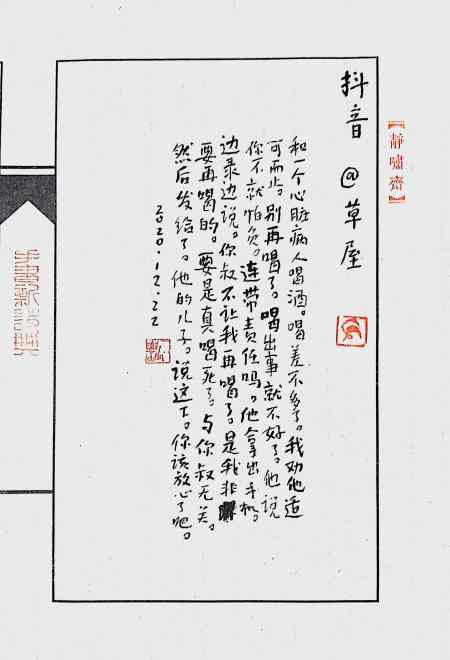 【静啸斋】
抖音 @草屋
和一个心脏病人喝酒。喝差不多了。我劝他适
可而止。别再喝了。喝出事就不好了。他说
你不就怕负。连带责任吗。他拿出手机。
边录边说。你叔不让我再喝了。是我非
要再喝的。要是真喝死了。与你叔无关。
然后发给了。他的儿子。说这下。你该放心了吧。
2020.12.22